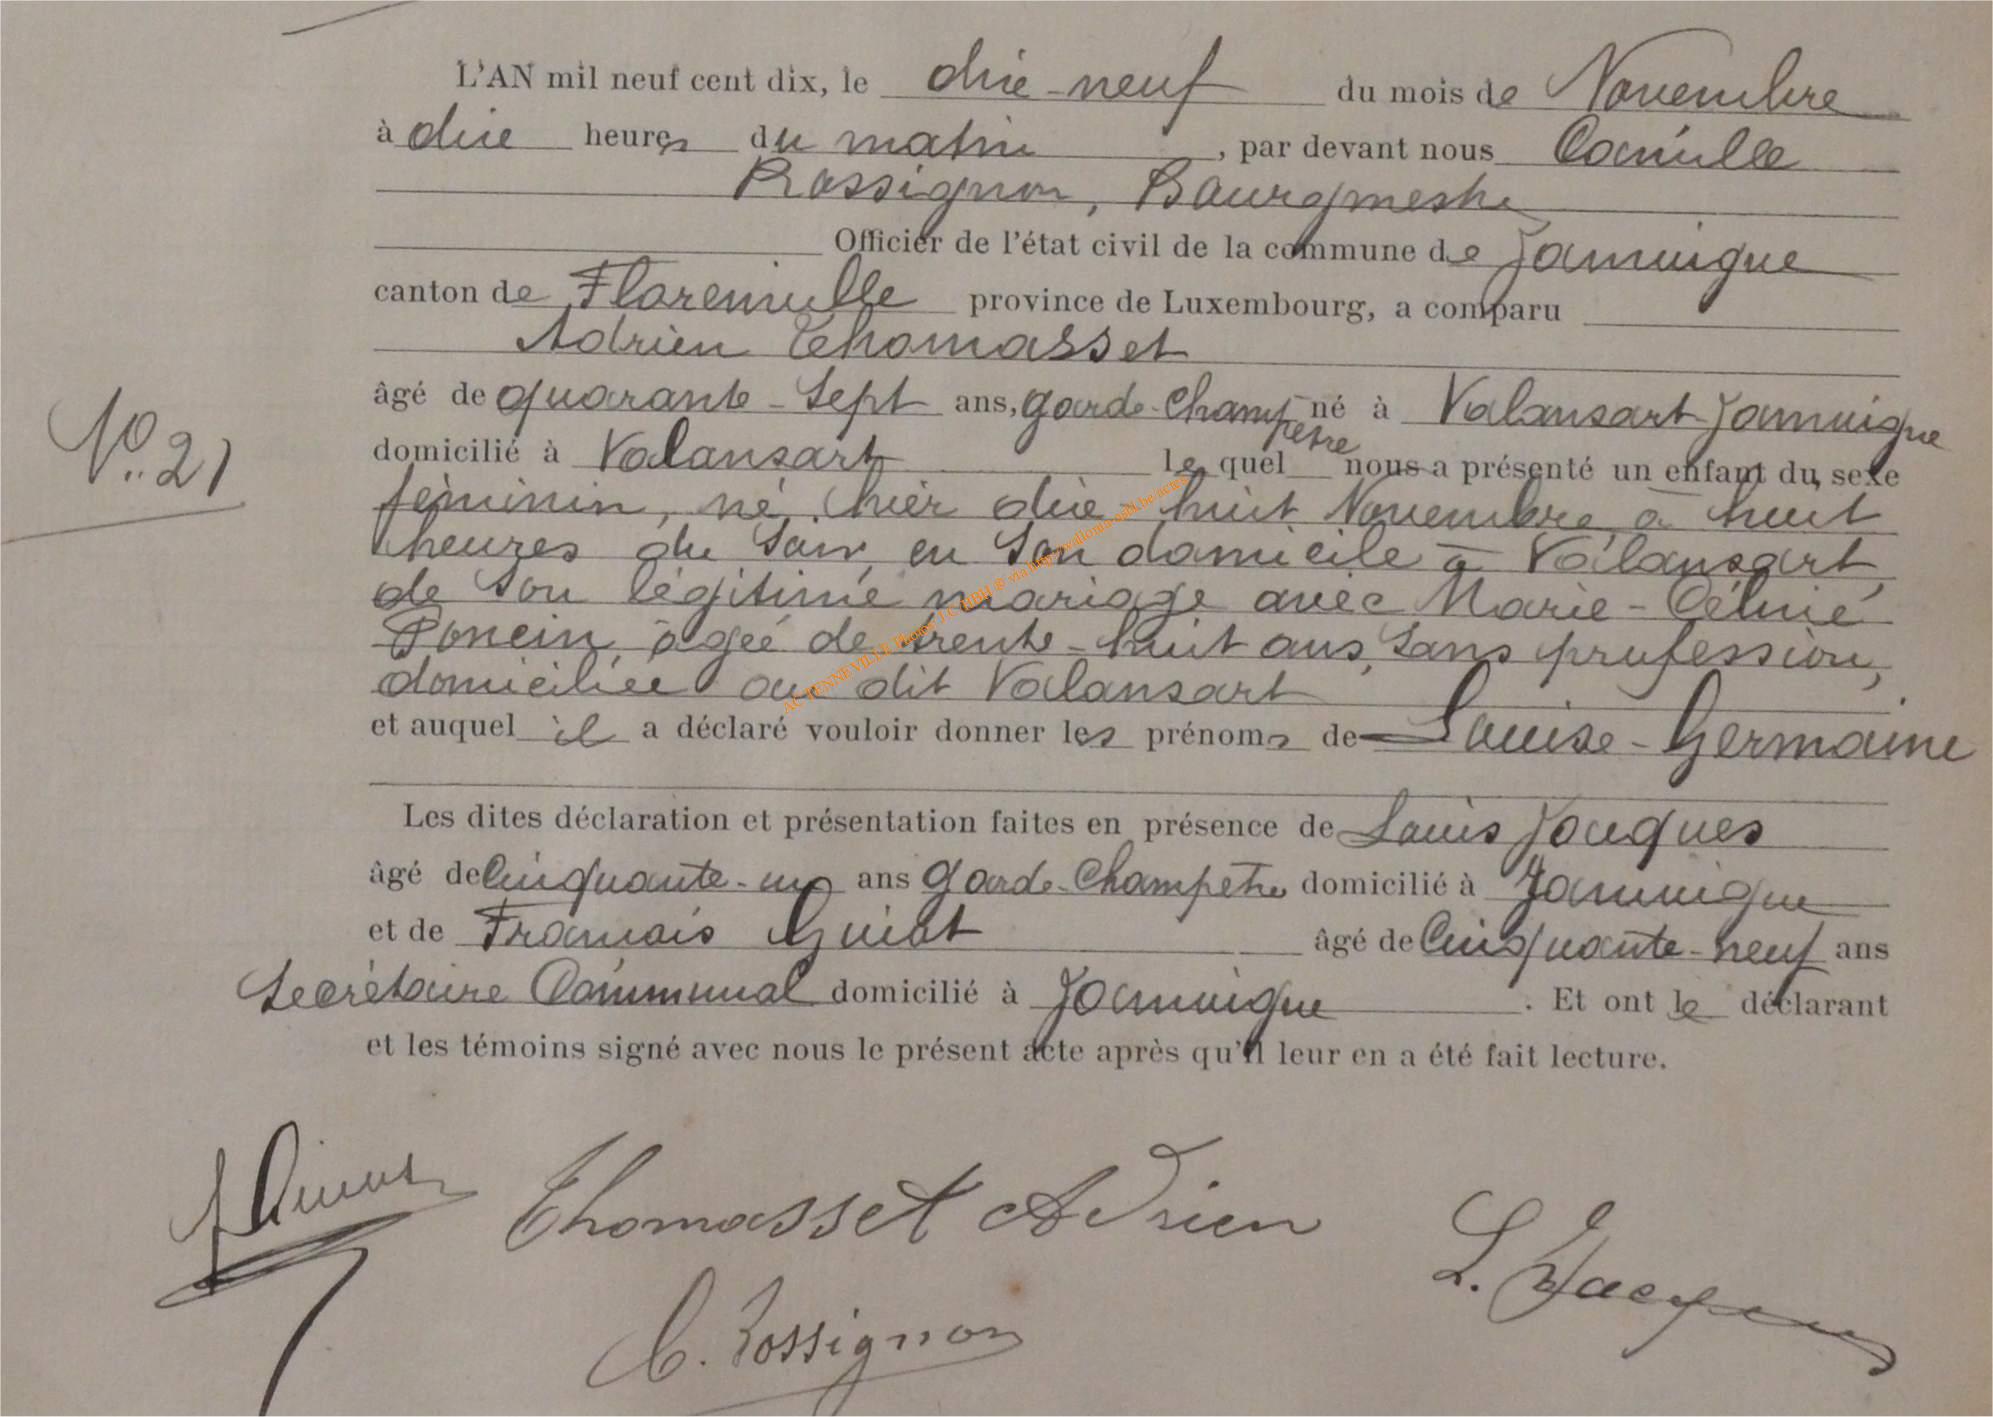 L'AN mil neuf cent dix, le dix-neuf du mois de Novembre
à dix heures du matin, par devant nous Camille
Rossignon, Bourgmestre
Officier de l'état civil de la commune de Jamoigne
canton de Florenville province de Luxembourg, a comparu
Adrien Thomasset
âgé de quarante-sept ans, garde-champêtre né à Valansart Jamoigne
domicilié à Valansart lequel nous a présenté un enfant du sexe
féminin, né hier dix-huit Novembre à huit
heures du soir, en son domicile à Valansart,
de son légitime mariage avec Marie-Céline
Poncin, âgée de trente-huit ans, sans profession,
domiciliée au dit Valansart
et auquel il a déclaré vouloir donner les prénoms de Louise-Germaine
Les dites déclaration et présentation faites en présence de Louis Jacques
âgé de Cinquante-un ans garde-champêtre domicilié à Jamoigne
N° 21
et de François Guiot âgé de Cinquante-neuf ans
Secrétaire Communal domicilié à Jamoigne. Et ont le déclarant
et les témoins signé avec nous le présent acte après qu'il leur en a été fait lecture.
Thomasset Adrien
L. Jacques
C. Rossignon